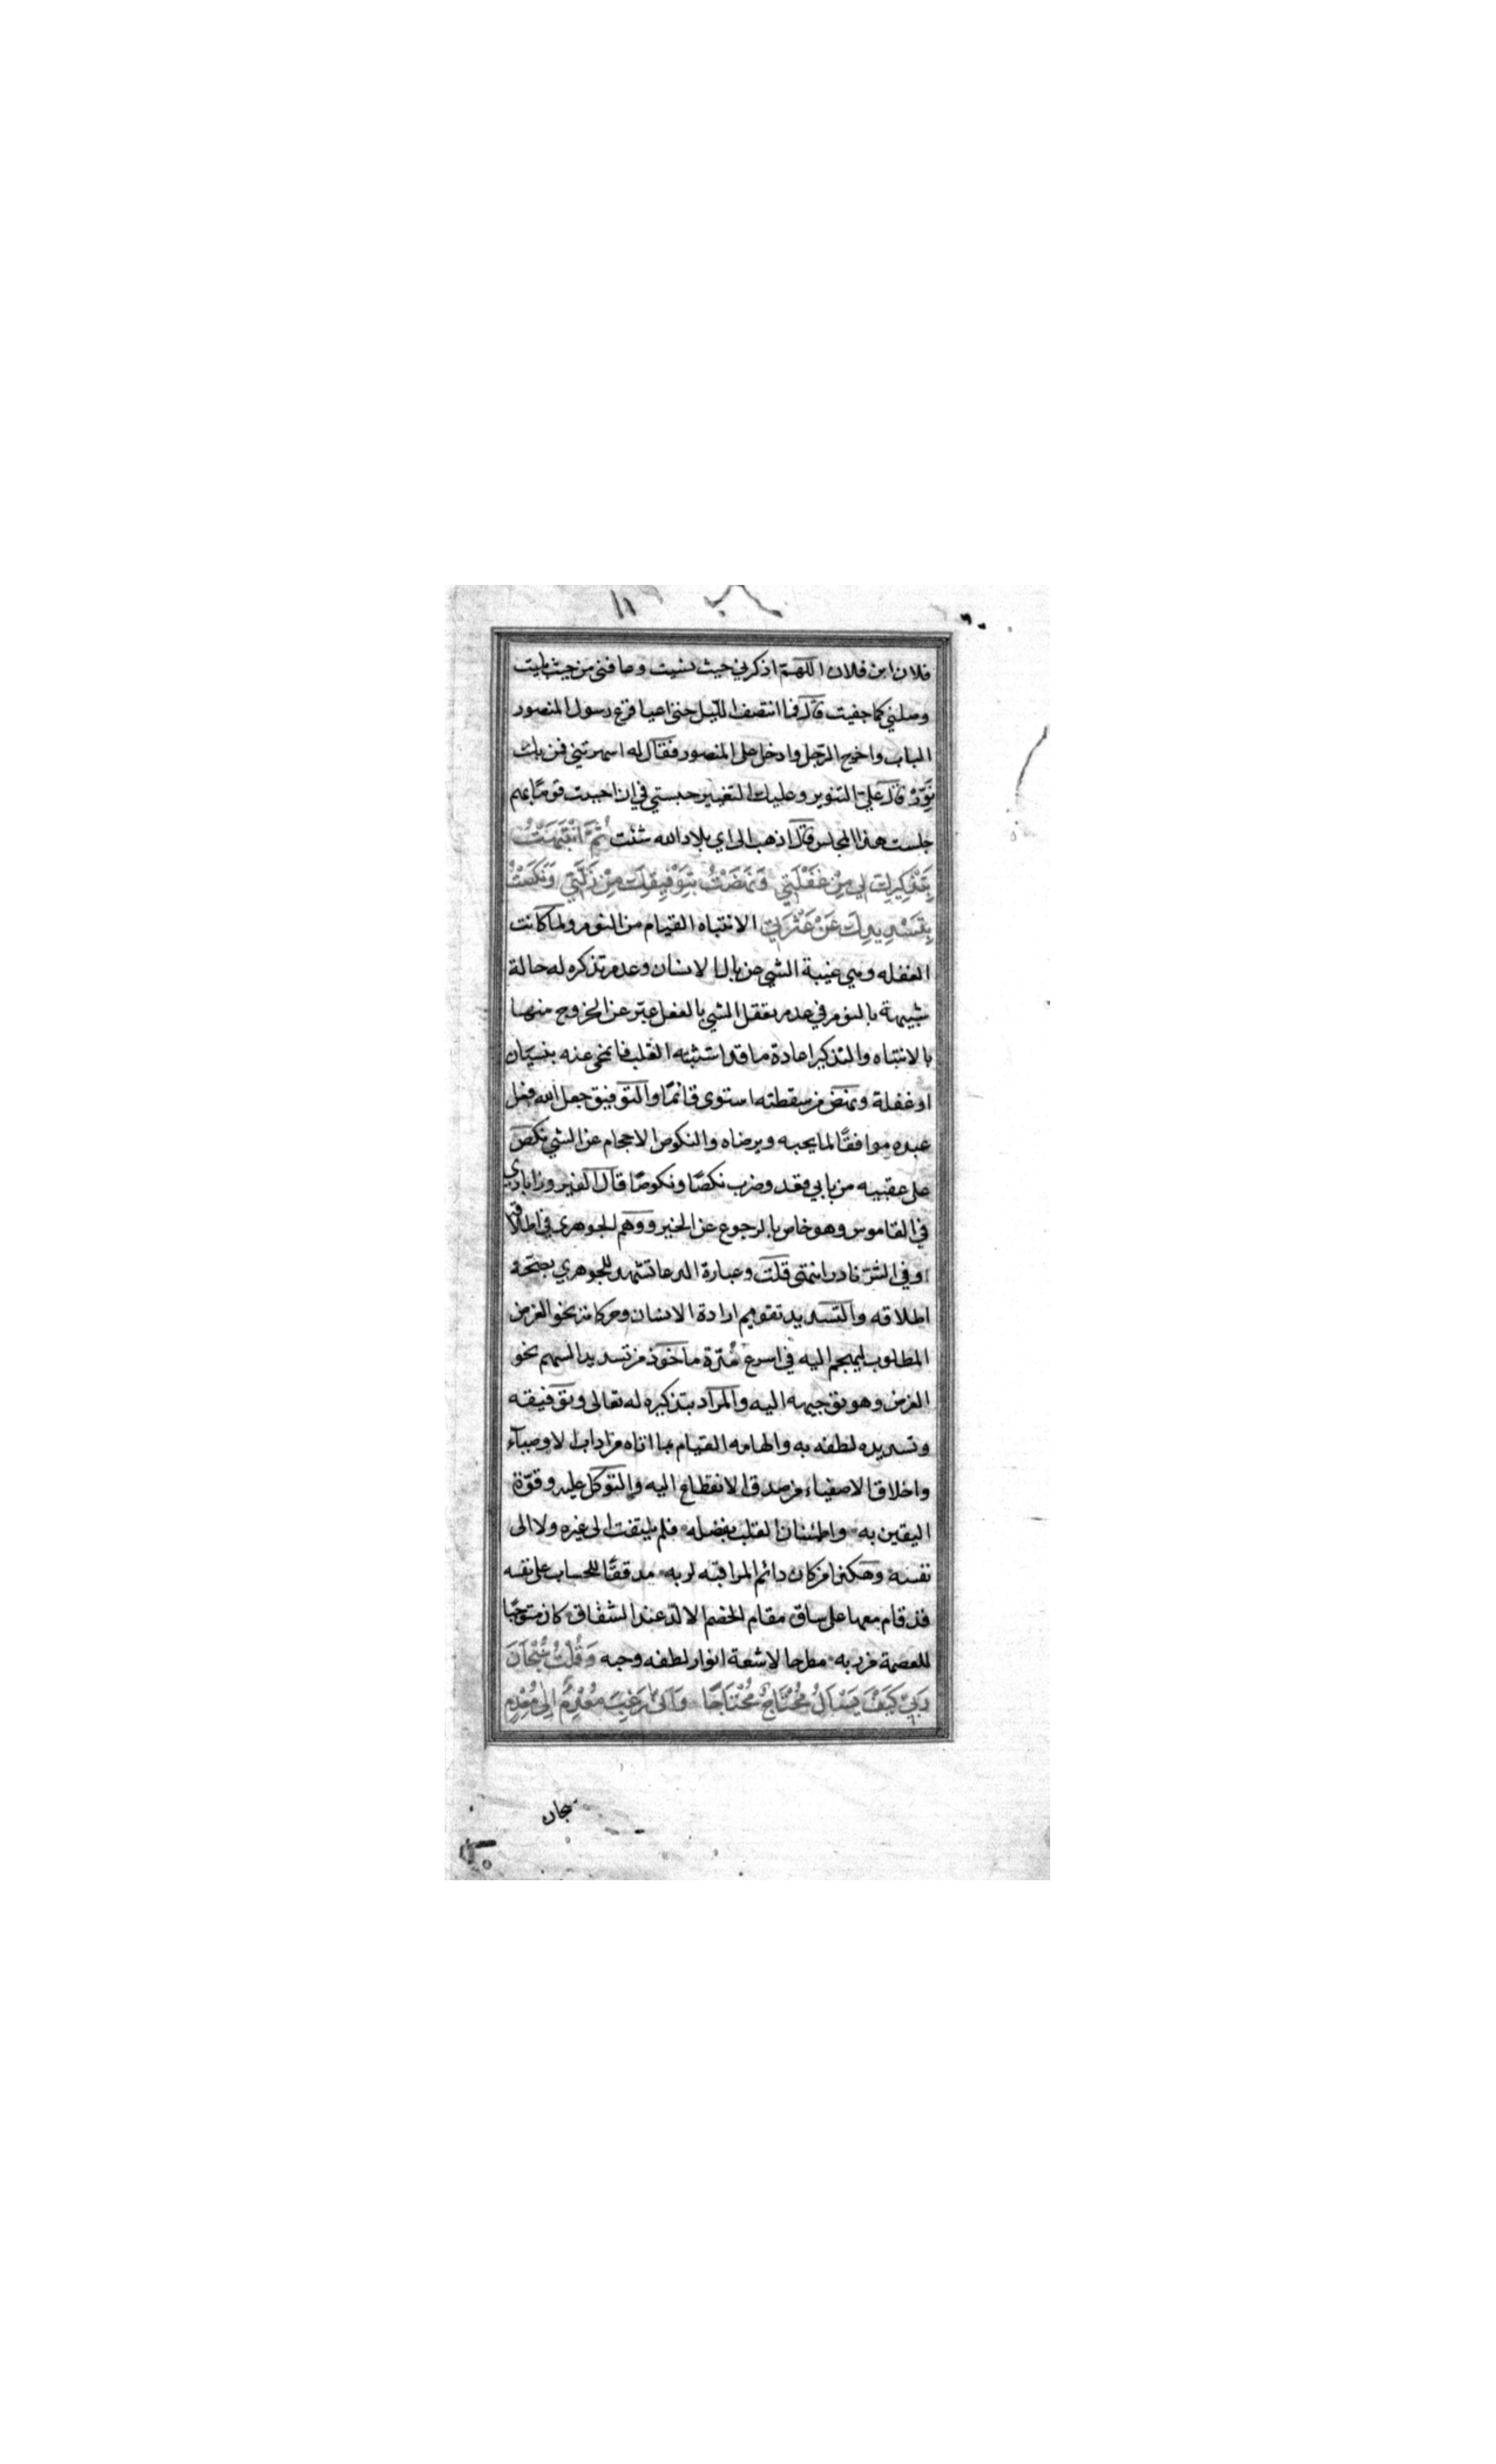 فلان ابن فلان اللهم اذكرني حيث نسيت وعافني من حيث بليت
وصلني كما جفيت قال فما انتصف الليل حتى قرع رسول المنصور
الباب واخرج الرجل وادخل على المنصور فقال له اسهرتني فمن بات
قال علي التنوير وعليك التغيير حبستي في ان احببت قوما بهم
جلست هذا المجلس قال اذهب الى اي بلاد الله شئت ثُمَّ انْتَبَهْتُ
بِتَذْكِيرِكَ لِي مِنْ غَفْلَتِي وَنَهَضْتُ بِتَوْفِيقِكَ مِنْ زَلَّتِي وَنَكَصْتُ
بِتَسْدِيدِكَ عَنْ عَثْرَتِي الانتباه القيام من النوم ولما كانت
الغفله وهي غيبة الشي عن بال الانسان وعدم تذكره له حالة
شبيهة بالنوم في عدم تعقل الشي بالفعل عبّر عن الخروج منها
بالانتباه والتذكير اعادة ما قد استثبته القلب فانمحى عنه بنسيان
او غفلة ونهض من سقطته استوى قائمًا والتوفيق جعل الله فعل
عبده موافقًا لما يحبه ويرضاه والنكوص الاحجام عن الشي نكص
على عقبيه من بابي قعد وضرب نكصًا ونكوصًا قال الفيروزابادي
في القاموس وهو خاص بالرجوع عن الخير ووهم الجوهري في اطلاقه
او في الشرّ نادر انتهى قلت وعبارة الدعا تشهد للجوهري بصحة
اطلاقه والتسديد تقويم ارادة الانسان وحركاته نحو الغرض
المطلوب ليهجم اليه في اسرع مُدّة ماخوذ من تسديد السهم نحو
الغرض وهو توجيهه اليه والمراد بتذكيره له تعالى وتوفيقه
وتسديده لطفه به والهامه القيام بما اتاه من اداب الاوصيآء
واخلاق الاصفياء من صدق الانقطاع اليه والتوكل عليه وقوّة
اليقين به واطمئنان القلب بفضله فلم يلتفت الى غيره ولا الى
نفسه وهكذا من كان دائم المراقبة لربه مدققًا للحساب على نفسه
قد قام معها على ساق مقام الخصم الالدّ عند الشقاق كان متوجّبًا
للعصمة من ربه مطرحا لاشعة انوار لطفه وحبه وَقُلْتُ سُبْحَانَ
رَبِّي كَيْفَ يَسْأَلُ مُحْتَاجٌ مُحْتَاجًا وَاَنّى رَغِبَ مُعْدِمٌ اِلى مُعْدِمٍ
سبحان